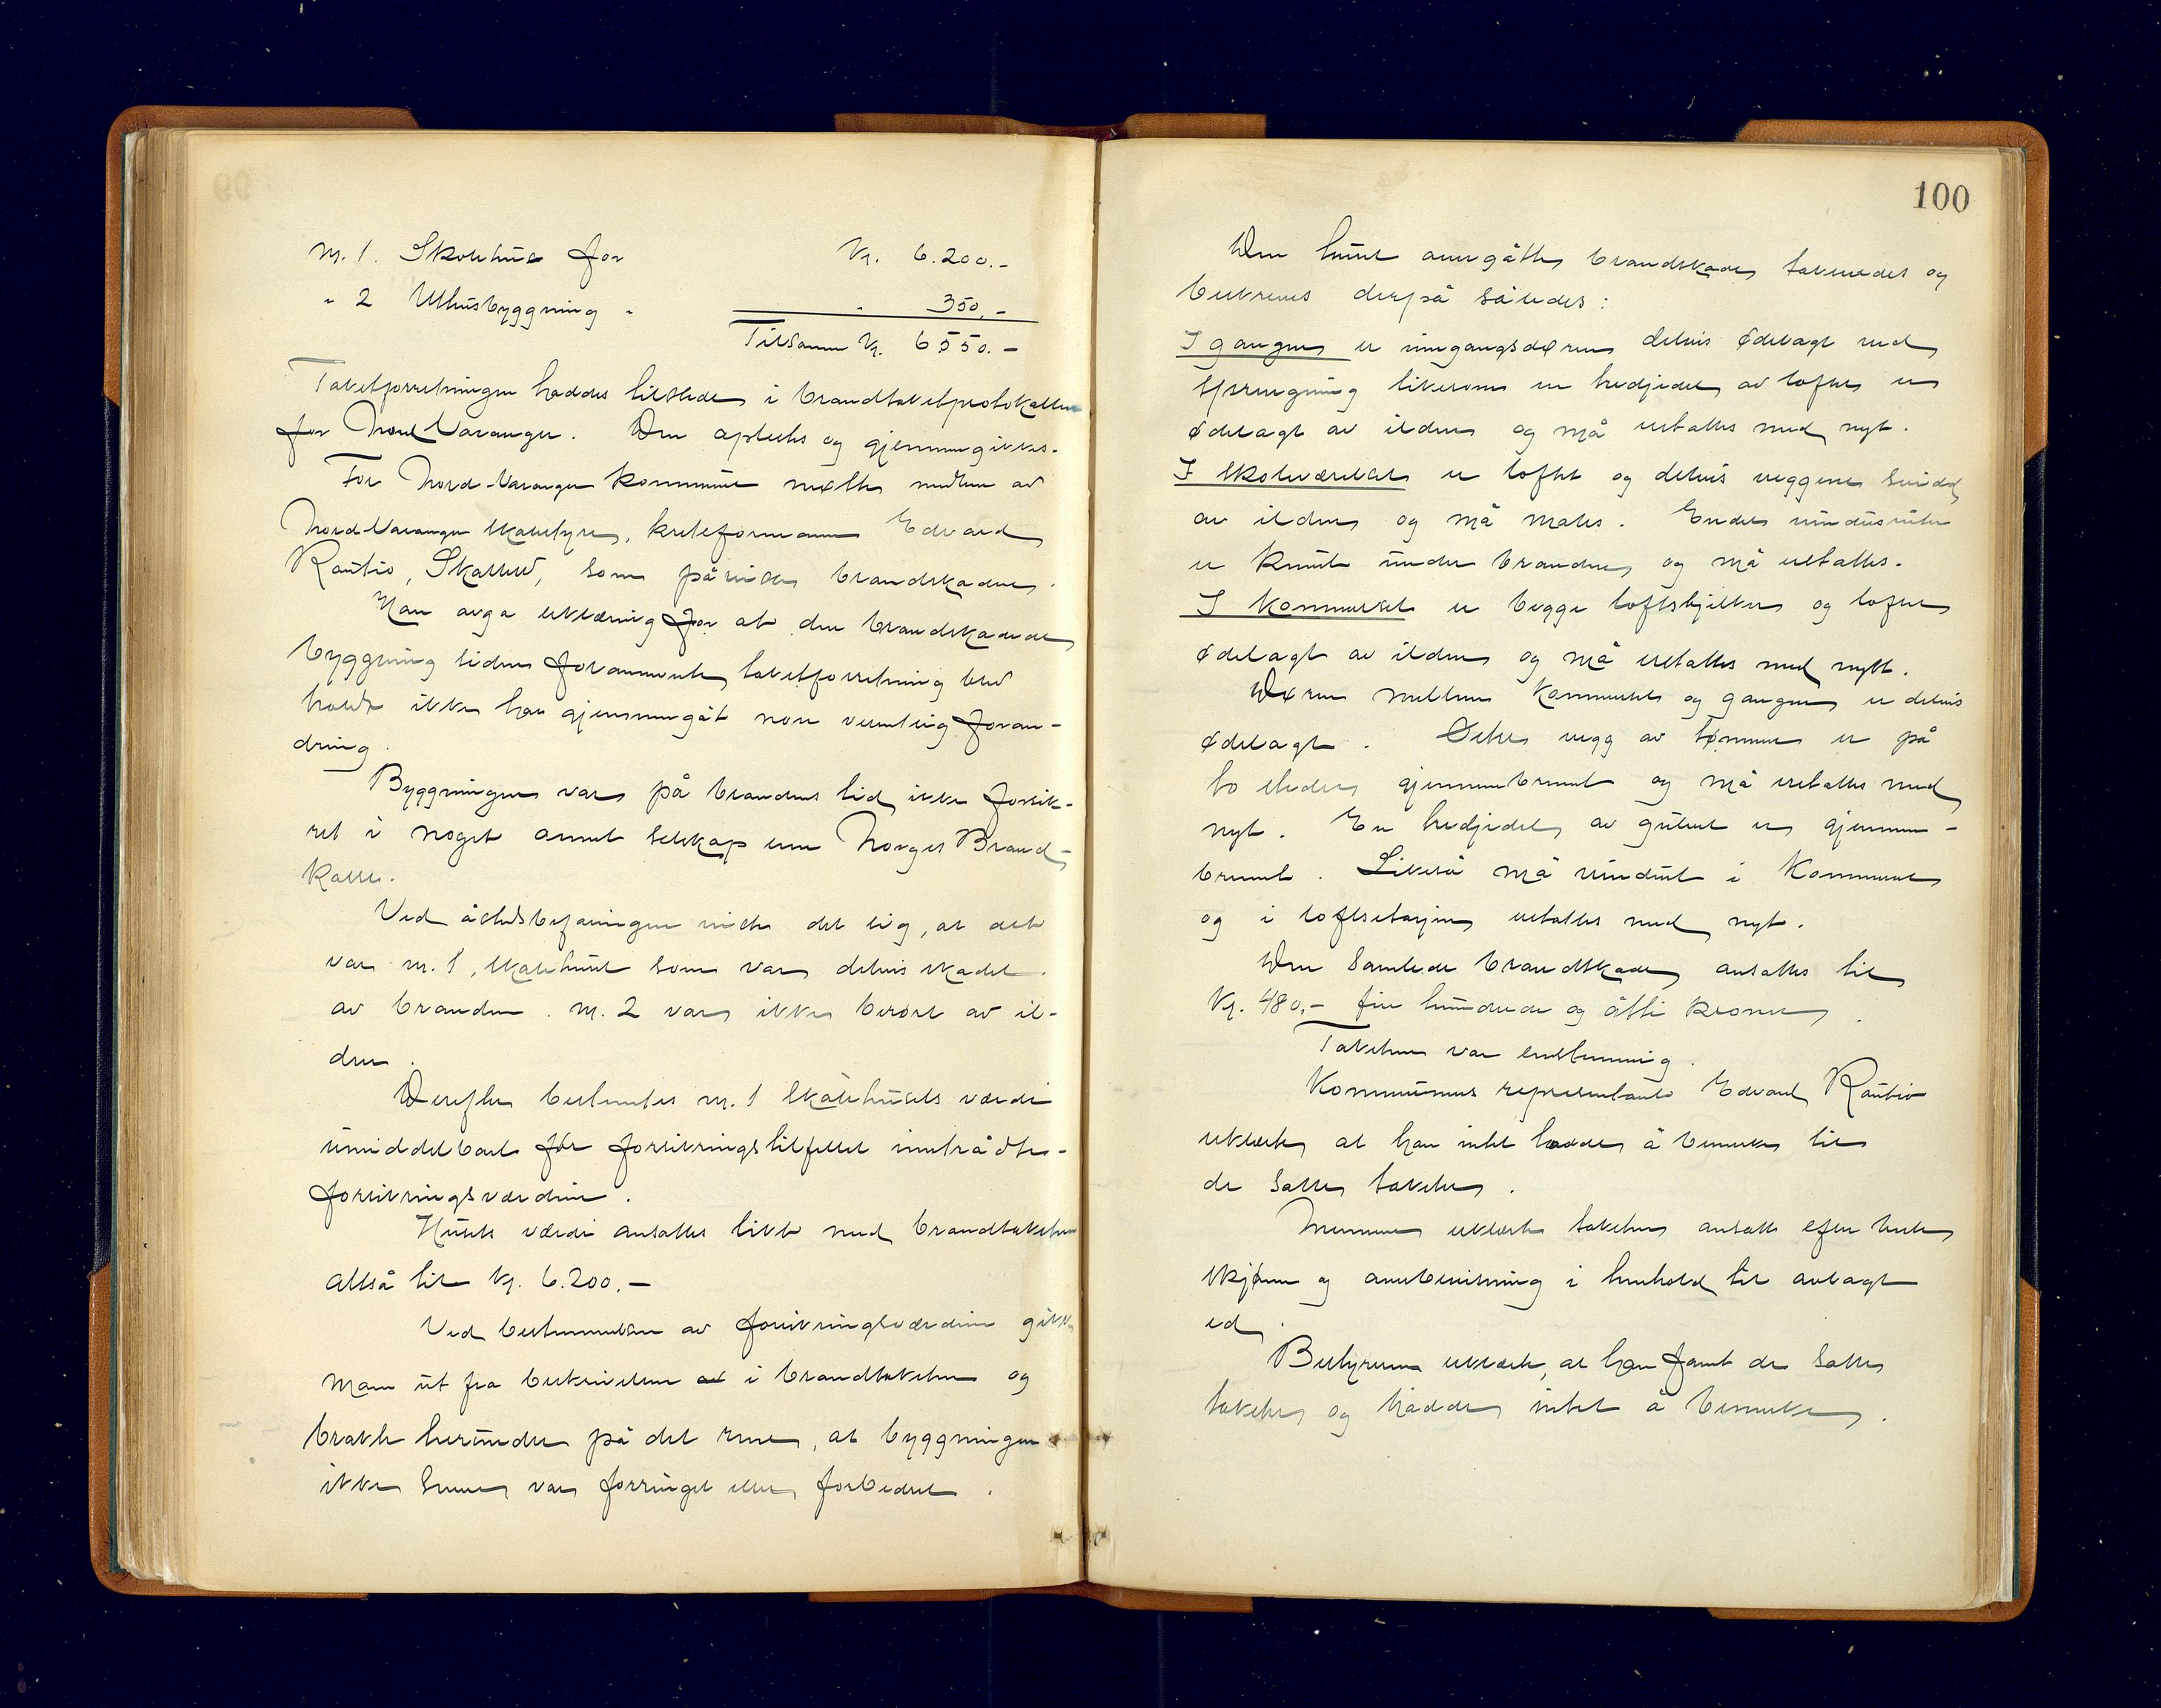 nr. 1. Skolehus for Kr. 6.200.-
" 2 Uthusbyggning " " 350.-
Tilsamm Kr. 6550.-
Takstforretningen haddes tilstede i brandtakstprotokollen
for Nord Varanger. Den oplestes og gjennemgikkes.
For Nord-Varanger kommune møtte medlem av
Nord-Varanger skolestyre, kretsformann Edvard
Rautio, Skallelv, som påviste brandskaden.
Man avga erklæring for at den brandskadede
byggning siden forannevnte takstforretning blev
holdt ikke har gjennemgåt noen vesentlig foran-
dring.
Byggningen var på brandens tid ikke forsik-
ret i noget annet selskap enn Norges Brand-
kasse.
Ved åstedsbefaringen viste det sig, at det
var nr. 1, skolehuset som var delvis skadet
av branden. nr. 2 var ikke berørt av il-
den.
Derefter bestemtes nr. 1 skolehusets værdi
umiddelbart før forsikringstilfellet inntrådte -
forsikringsværdien.
Husets værdi ansattes likt med brandtaksten
altså til kr. 6.200.-
Ved bestemmelsen av forsikringsværdien gikk
man ut fra beskrivelsen i brandtaksten og
bragte herunder på det rene, at byggningen
ikke senere var forringet eller forbedret.
100
Den huset overgåtte brandskade takseredes og
beskreves derpå således:
I gangen er inngangsdøren delvis ødelagt ved
sprengning likesom en tredjedel av loftet er
ødelagt av ilden og må erstattes med nyt.
I skoleværelset er loftet og delvis veggene svidd
av ilden og må males. Endel vindusruter
er knust under branden og må erstattes.
I kammerset er begge loftsbjelker og loftet
ødelagt av ilden og må erstattes med nytt.
Døren mellem kammerset og gangen er delvis
ødelagt. Østre vegg av tømmer er på
to steder gjennembrent og må erstattes med
nyt. En tredjedel av gulvet er gjennem-
brent. Likeså må vinduet i kammerset
og i loftsetasjen erstattes med nyt.
Den samlede brandskade ansattes til
Kr. 480,- fire hundrede og åtti kroner.
Taksten var enstemmig.
Kommunens representant Edvard Rautio
erklærte at han intet hadde å bemerke til
de satte takster.
Mennene erklærte taksten ansatt efter beste
skjønn og overbevisning i henhold til avlagt
ed.
Bestyreren erklærte, at han fant de satte
takster og hadde intet å bemerke.